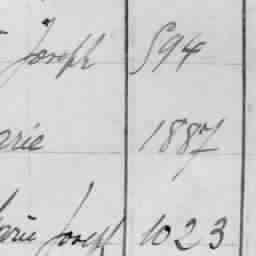 Joseph 594
arie 1887
arie Joseph 1023